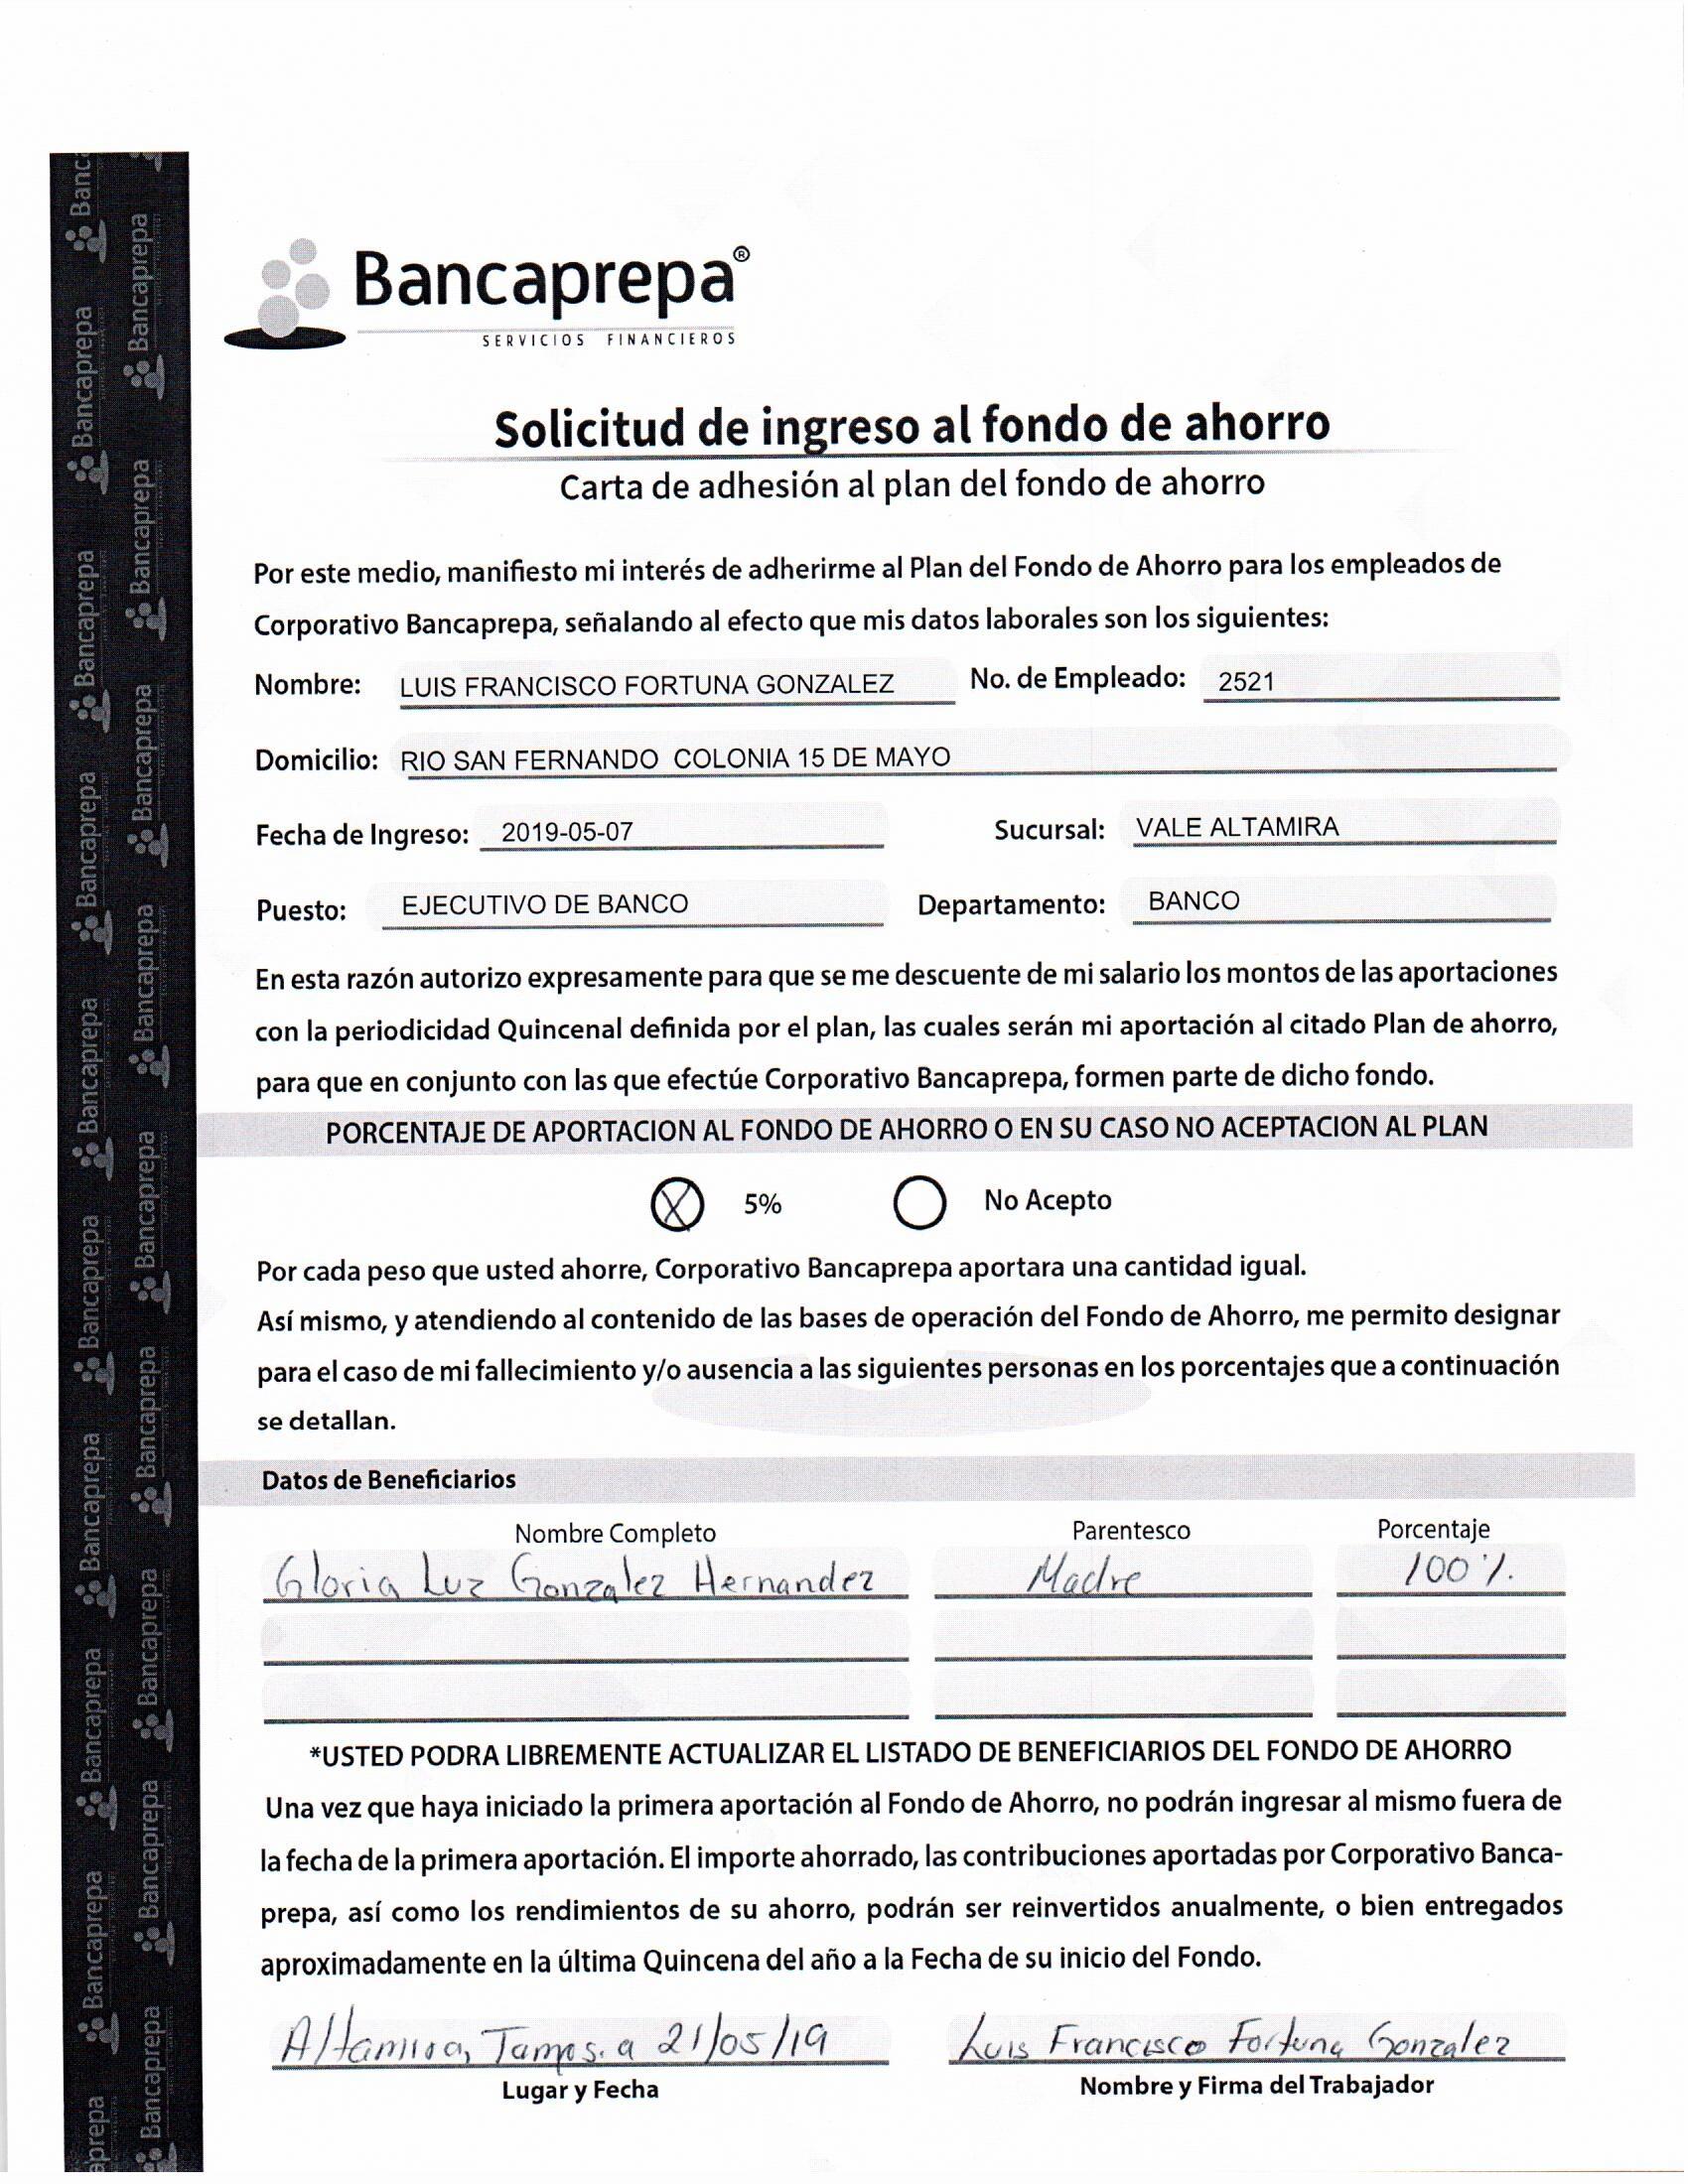 Bancaprepa®
SERVICIOS FINANCIEROS
Solicitud de ingreso al fondo de ahorro
Carta de adhesión al plan del fondo de ahorro
Por este medio, manifiesto mi interés de adherirme al Plan del Fondo de Ahorro para los empleados de
Corporativo Bancaprepa, señalando al efecto que mis datos laborales son los siguientes:
Nombre: LUIS FRANCISCO FORTUNA GONZALEZ No. de Empleado: 2521
Domicilio: RIO SAN FERNANDO COLONIA 15 DE MAYO
Fecha de Ingreso: 2019-05-07 Sucursal: VALE ALTAMIRA
Puesto: EJECUTIVO DE BANCO Departamento: BANCO
En esta razón autorizo expresamente para que se me descuente de mi salario los montos de las aportaciones
con la periodicidad Quincenal definida por el plan, las cuales serán mi aportación al citado Plan de ahorro,
para que en conjunto con las que efectúe Corporativo Bancaprepa, formen parte de dicho fondo.
PORCENTAJE DE APORTACION AL FONDO DE AHORRO O EN SU CASO NO ACEPTACION AL PLAN
X 5% No Acepto
Por cada peso que usted ahorre, Corporativo Bancaprepa aportara una cantidad igual.
Así mismo, y atendiendo al contenido de las bases de operación del Fondo de Ahorro, me permito designar
para el caso de mi fallecimiento y/o ausencia a las siguientes personas en los porcentajes que a continuación
se detallan.
Datos de Beneficiarios
Nombre Completo Parentesco Porcentaje
Gloria Luz Gonzalez Hernandez Madre 100%
*USTED PODRA LIBREMENTE ACTUALIZAR EL LISTADO DE BENEFICIARIOS DEL FONDO DE AHORRO
Una vez que haya iniciado la primera aportación al Fondo de Ahorro, no podrán ingresar al mismo fuera de
la fecha de la primera aportación. El importe ahorrado, las contribuciones aportadas por Corporativo Banca-
prepa, así como los rendimientos de su ahorro, podrán ser reinvertidos anualmente, o bien entregados
aproximadamente en la última Quincena del año a la Fecha de su inicio del Fondo.
Altamira, Tamps. a 21/05/19 Luis Francisco Fortuna Gonzalez
Lugar y Fecha Nombre y Firma del Trabajador